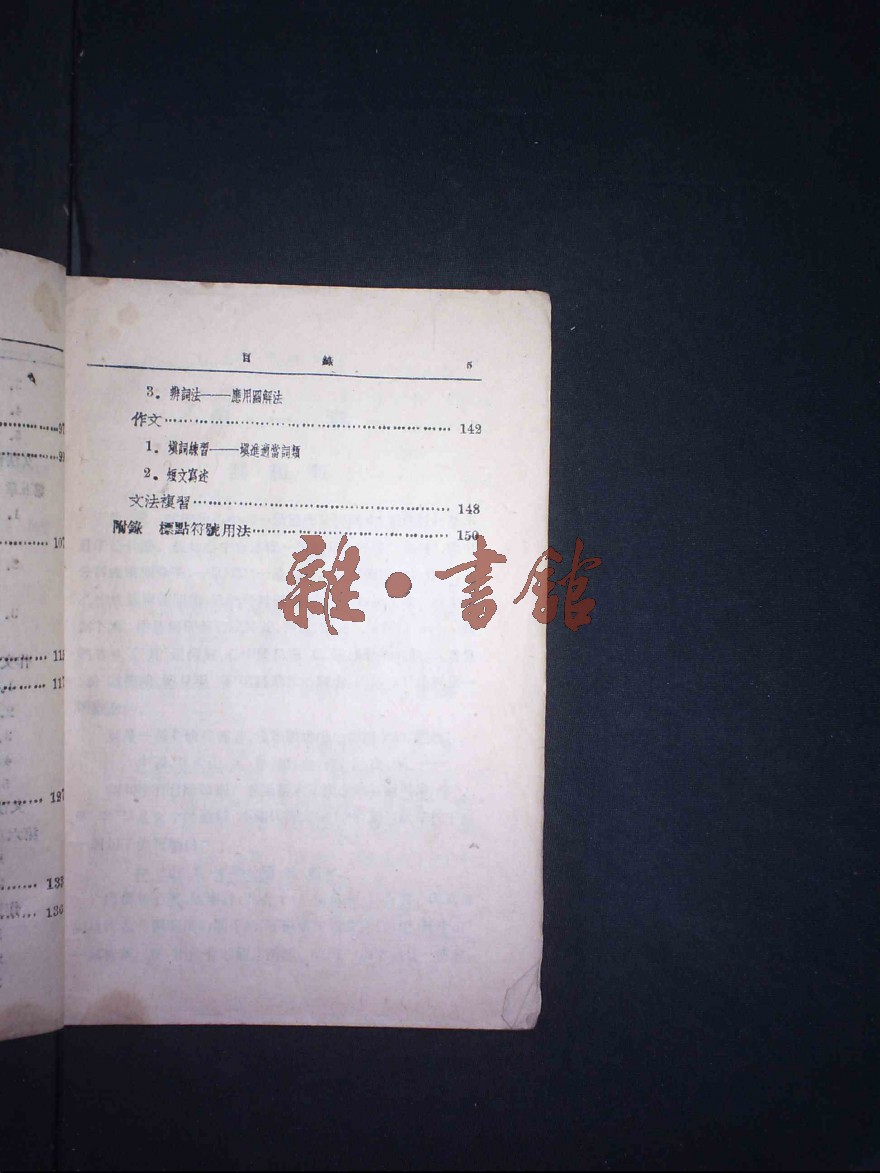 目錄 5
3. 辨詞法——應用圖解法
作文 142
1. 填詞練習——填進適當詞類
2. 短文寫述
文法複習 148
附錄 標點符號用法 150
雜·書館
97
99
107
115
117
127
135
136